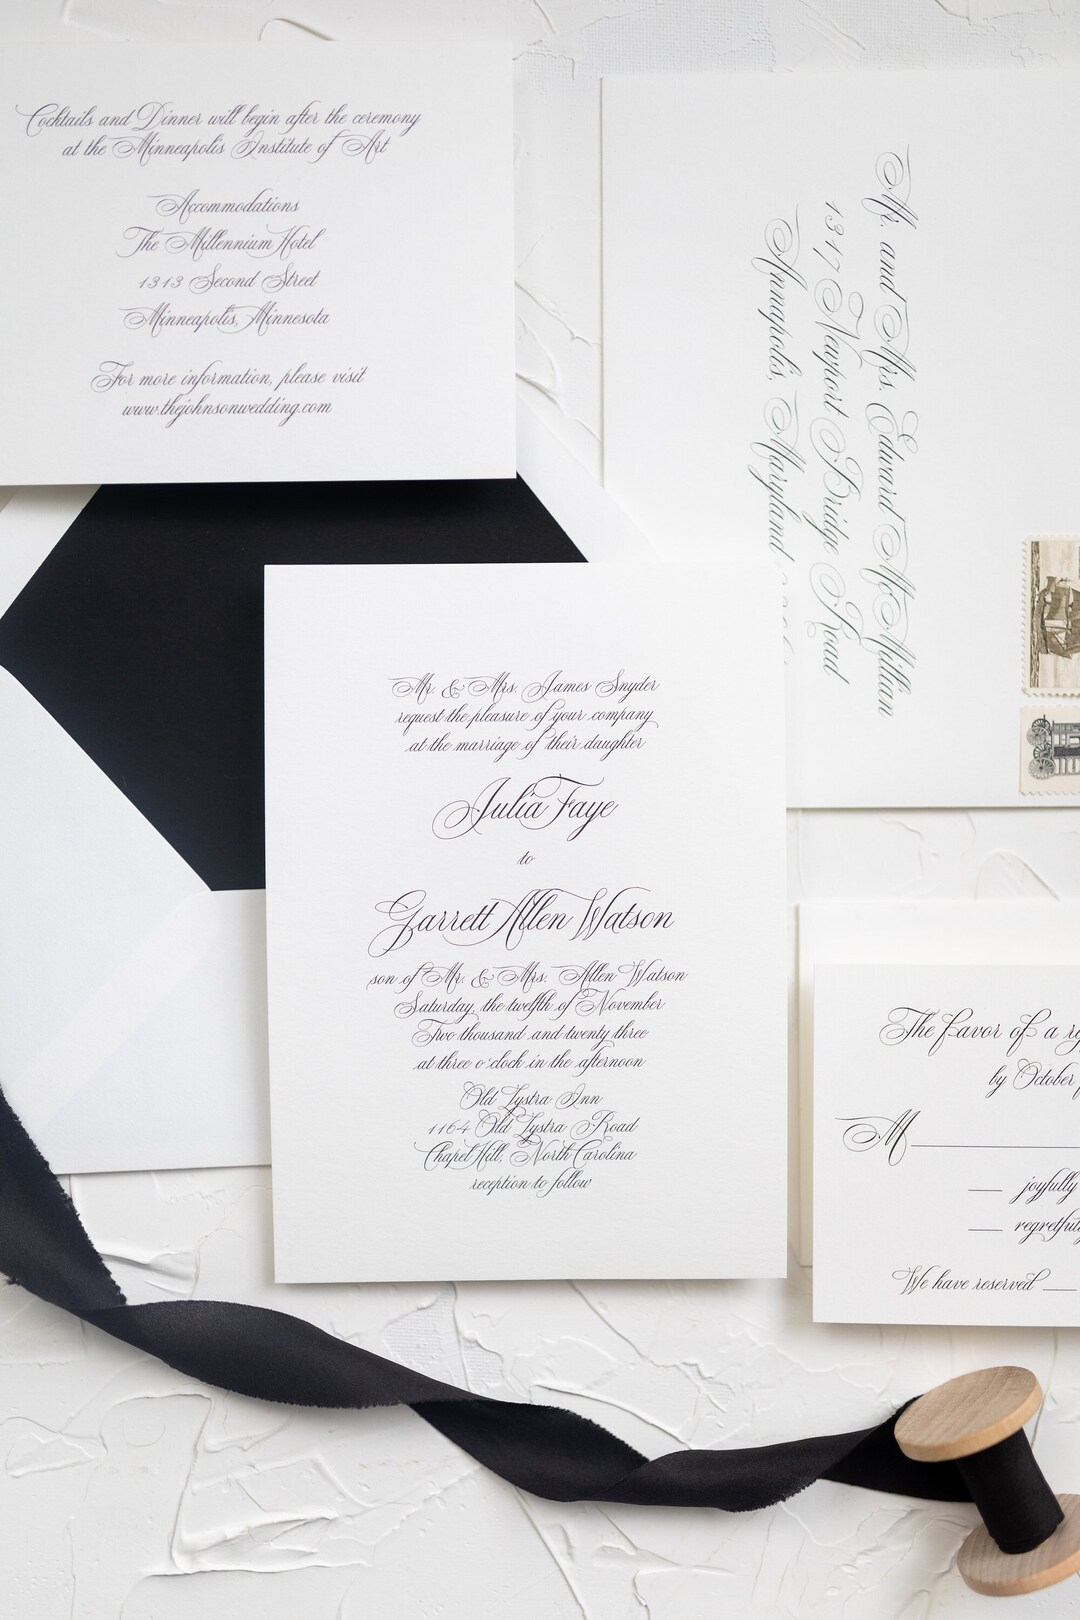 Cocktails and Dinner will begin after the ceremony
at the Minneapolis Institute of Art
Accommodations
The Millennium Hotel
1313 Second Street
Minneapolis, Minnesota
For more information, please visit
www.thejohnsonwedding.com
Mr. and Mrs. Edward McMillian
1317 Newport Bridge Road
Annapolis, Maryland
Mr. & Mrs. James Snyder
request the pleasure of your company
at the marriage of their daughter
Julia Faye
to
Garrett Allen Watson
son of Mr. & Mrs. Allen Watson
Saturday, the twelfth of November
Two thousand and twenty three
at three o'clock in the afternoon
Old Lystra Inn
1164 Old Lystra Road
Chapel Hill, North Carolina
reception to follow
The favor of a
by October
M
joyfully
We have reserved